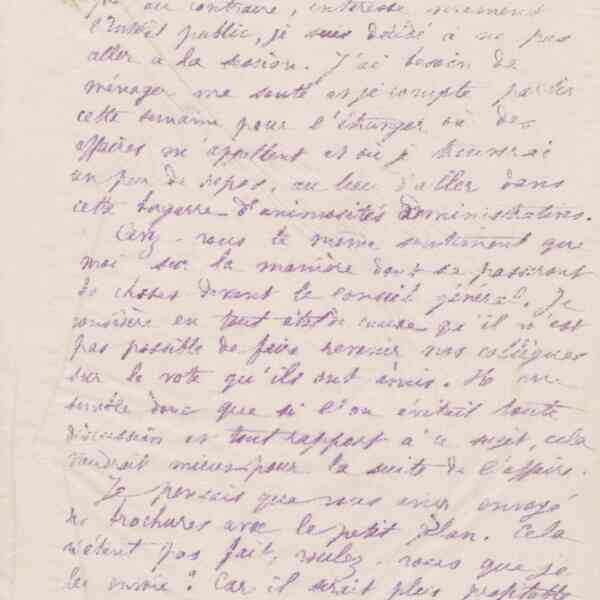 au contraire, intéresse vivement
l'intérêt public, je suis décidé à ne pas
aller à la session. J'ai besoin de
ménager ma santé et je compte partir
cette semaine pour l'étranger où des
affaires m'appellent et où je trouverai
un peu de repos, au lieu d'aller dans
cette bagarre d'animosités administratives.
Avez-vous le même sentiment que
moi sur la manière dont se passeront
les choses devant le Conseil général. Je
considère en tout état de cause qu'il n'est
pas possible de faire revenir nos collègues
sur le vote qu'ils ont émis. Il me
semble donc que si l'on évitait toute
discussion et tout rapport à ce sujet, cela
vaudrait mieux pour la suite de l'affaire.
Je pensais que vous aviez envoyé
les brochures avec le petit plan. Cela
n'étant pas fait, voulez-vous que je
les envoie? Car il serait plus profitable